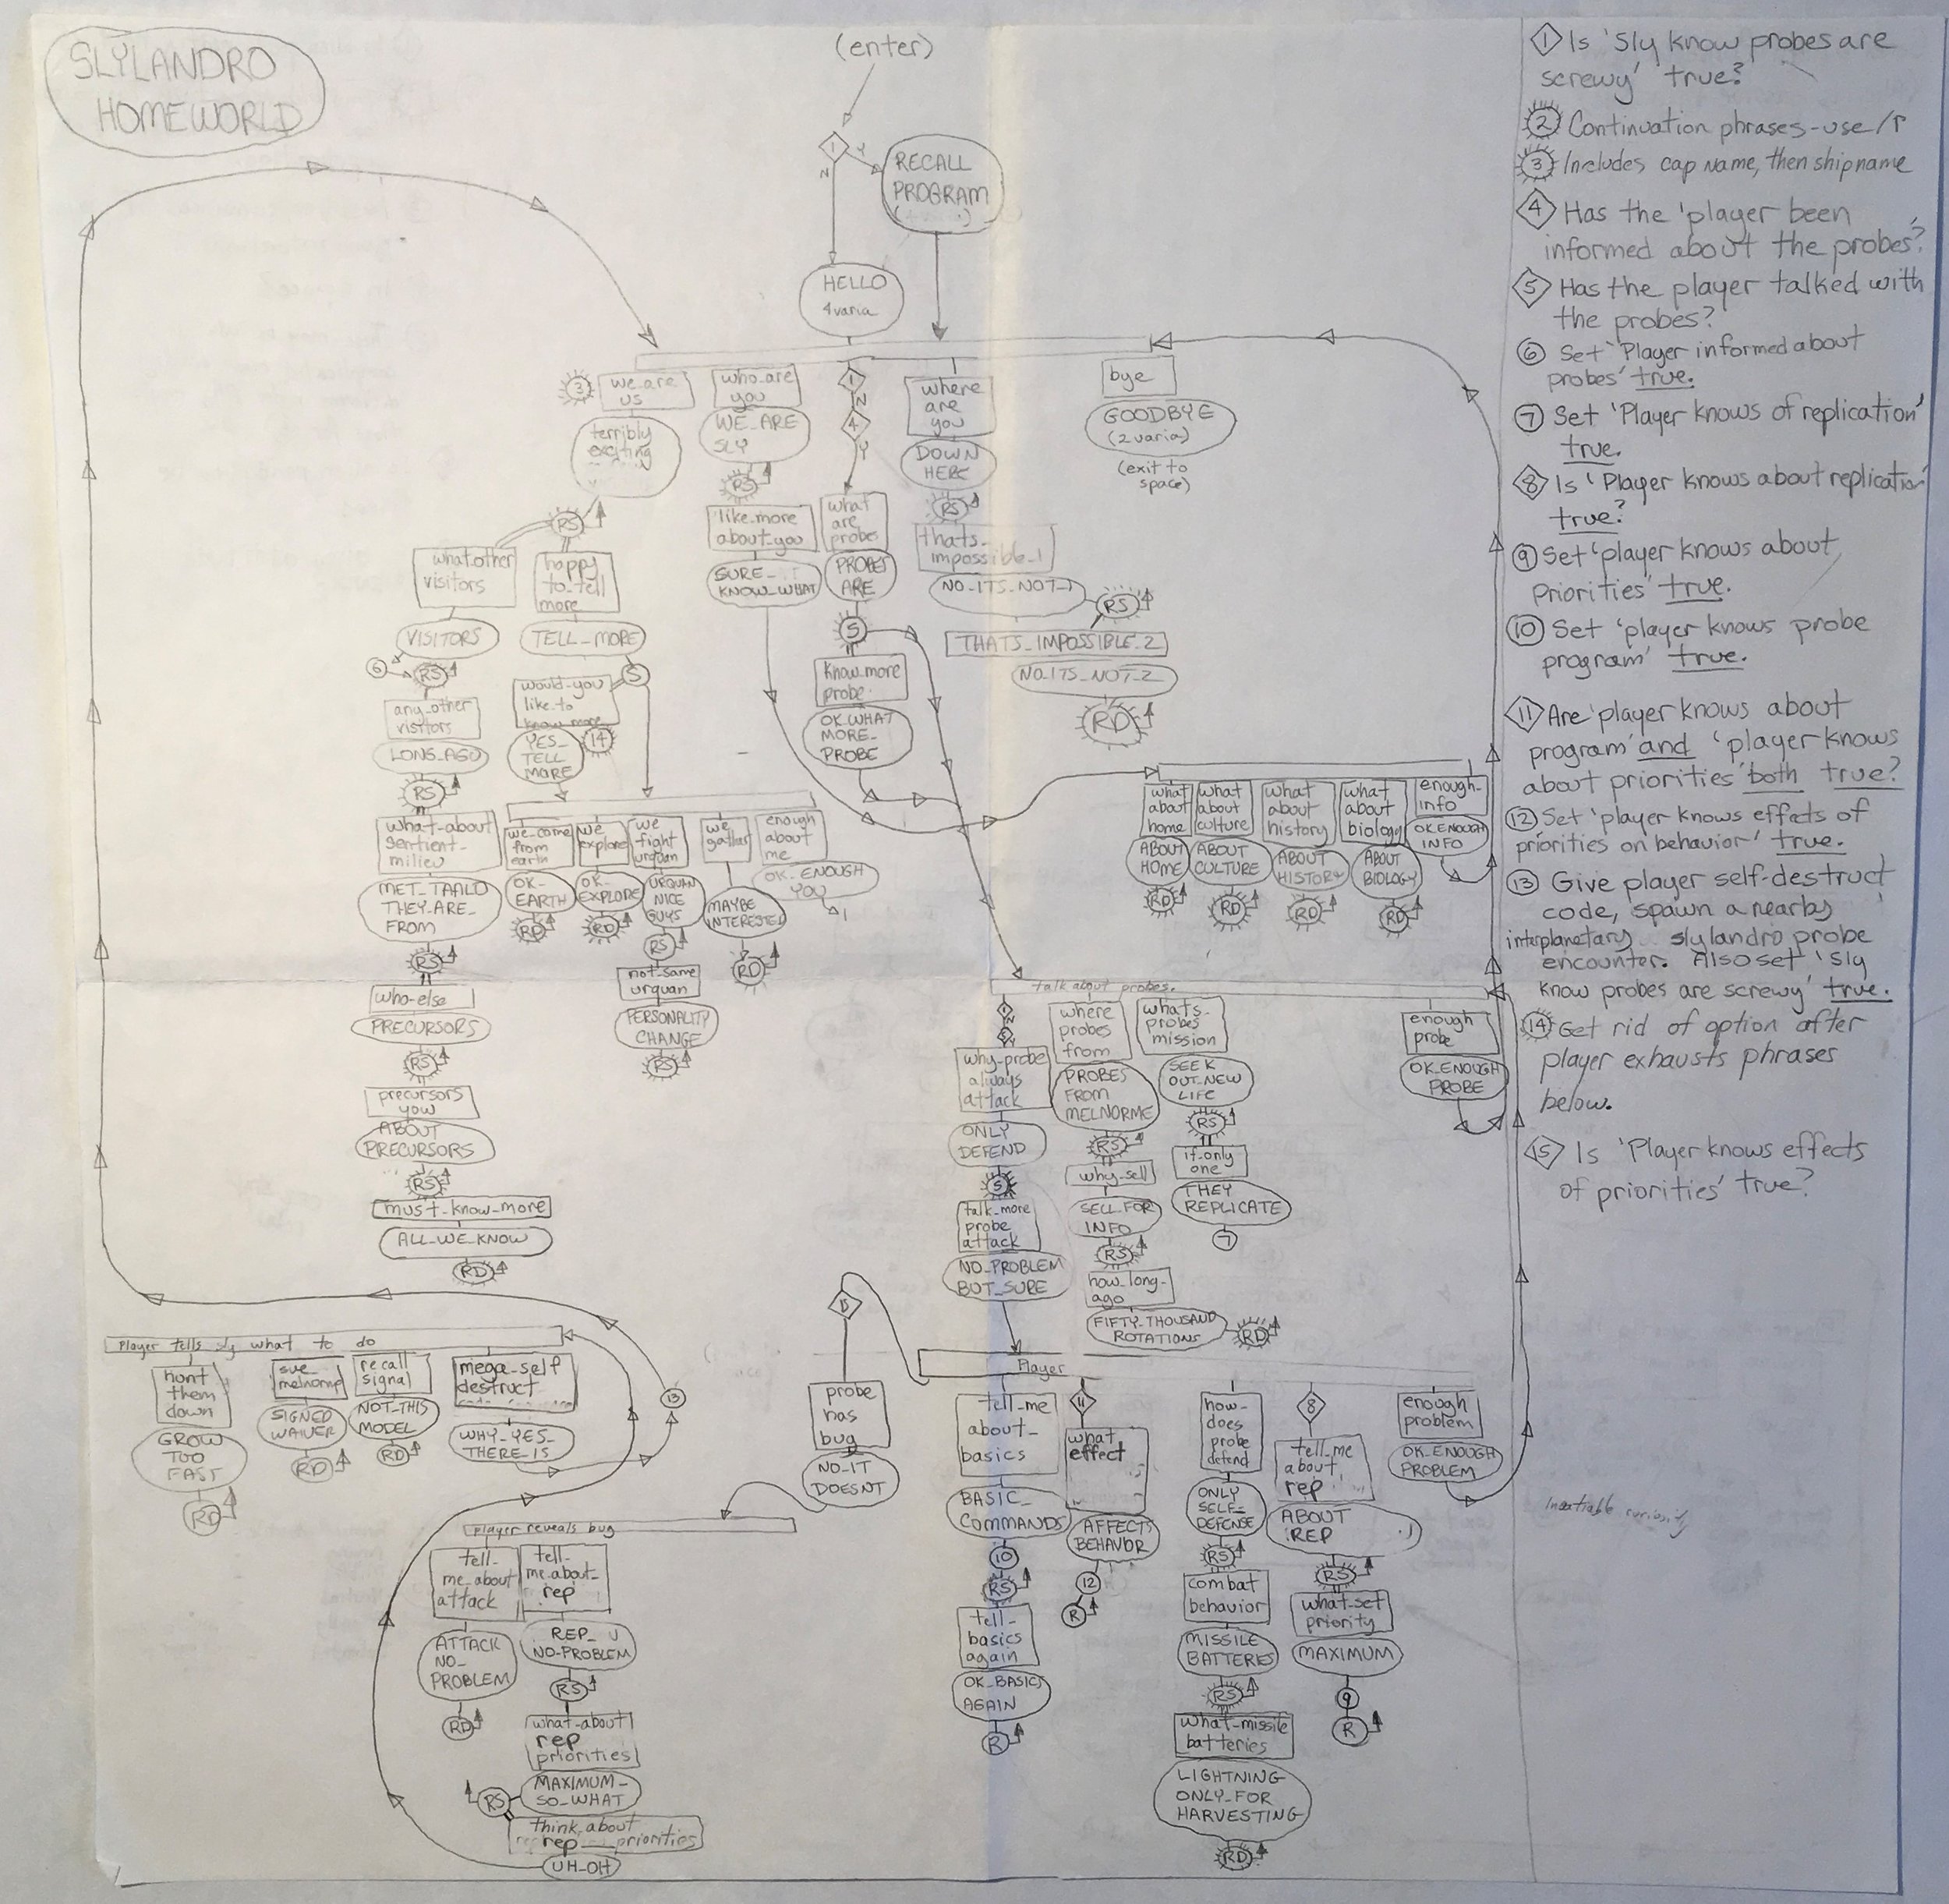 SLYLANDRO
HOMEWORLD
(enter)
1
Y
N
RECALL
PROGRAM
HELLO
4varia
3
we.are
us
terribly
exciting
RS
what.other
visitors
VISITORS
6
RS
any_other
visitors
LONG_AGO
RS
what-about
sentient_
milieu
MET_TAALO
THEY_ARE_
FROM
RS
who-else
PRECURSORS
RS
precursors
yow
ABOUT
PRECURSORS
RS
must_know_more
ALL_WE_KNOW
RD
happy
to_tell
more
TELL_MORE
5
would-you
like.to
know more
14
YES_
TELL
MORE
we_come
from
earth
OK_
EARTH
RD
we
explore
OK_
EXPLORE
RD
we
fight
urquan
URQUAN
NICE
GUYS
RS
not_same
urquan
PERSONALITY
CHANGE
RS
we
gather
MAYBE
INTERESTED
RD
enough
about
me
OK_ENOUGH
YOU
who.are
you
WE_ARE
SLY
RS
like.more
about.you
SURE_
KNOW_WHAT
1
N
4
Y
what
are
probes
PROBES
ARE
5
know.more
probe
OK.WHAT
MORE_
PROBE
where
are
you
DOWN
HERE
RS
thats_
impossible_1
NO_ITS_NOT_1
RS
THATS_IMPOSSIBLE_2
NO_ITS_NOT_2
RD
bye
GOODBYE
(2varia)
(exit to
space)
what
about
home
ABOUT
HOME
RD
what
about
culture
ABOUT
CULTURE
RD
what
about
history
ABOUT
HISTORY
RD
what
about
biology
ABOUT
BIOLOGY
RD
enough-
info
OK.ENOUGH
INFO
talk about probes.
N
Y
why-probe
always
attack
ONLY
DEFEND
5
talk_more
probe
attack
NO_PROBLEM
BUT_SURE
where
probes
from
PROBES
FROM
MELNORME
RS
why_sell
SELL_FOR
INFO
RS
how_long-
ago
FIFTY_THOUSAND
ROTATIONS
RD
whats_
probes
mission
SEEK
OUT_NEW
LIFE
RS
if_only
one
THEY
REPLICATE
7
enough
probe
OK_ENOUGH
PROBE
Player
15
probe
has
bug
NO_IT
DOESNT
tell_me
about_
basics
BASIC_
COMMANDS
10
RS
tell_
basics
again
OK_BASICS
AGAIN
R
11
what
effect
AFFECTS
BEHAVOR
12
R
how_
does
probe
defend
ONLY
SELF_
DEFENSE
RS
combat
behavior
MISSILE
BATTERIES
RS
what_missile
batteries
LIGHTNING
ONLY_FOR
HARVESTING
RD
8
tell_me
about
rep
ABOUT
REP
RS
what_set
priority
MAXIMUM
9
R
enough
problem
OK_ENOUGH
PROBLEM
Player tells sly what to do
hunt
them
down
GROW
TOO
FAST
RD
sue_
melnorme
SIGNED
WAIVER
RD
recall
signal
NOT_THIS
MODEL
RD
mega_self
destruct
WHY_YES_
THERE_IS
13
player reveals bug
tell_
me_about
attack
ATTACK
NO_
PROBLEM
RD
tell_
me_about_
rep
REP_
NO-PROBLEM
RS
what_about
rep
priorities
MAXIMUM_
SO_WHAT
RS
think_about
rep priorities
UH_OH
1 Is 'Sly know probes are
screwy' true?
2 Continuation phrases-use /↑
3 Includes cap name, then shipname
4 Has the 'player been
informed about the probes'?
5 Has the player talked with
the probes?
6 Set 'Player informed about
probes' true.
7 Set 'Player knows of replication'
true.
8 Is 'Player knows about replication'
true?
9 Set 'player knows about
Priorities' true.
10 Set 'player knows probe
program' true.
11 Are 'player knows about
program' and 'player knows
about priorities' both true?
12 Set 'player knows effects of
priorities on behavior' true.
13 Give player self-destruct
code, spawn a nearby
interplanetary slylandro probe
encounter. Also set 'sly
know probes are screwy' true.
14 Get rid of option after
player exhausts phrases
below.
15 Is 'Player knows effects
of priorities' true?